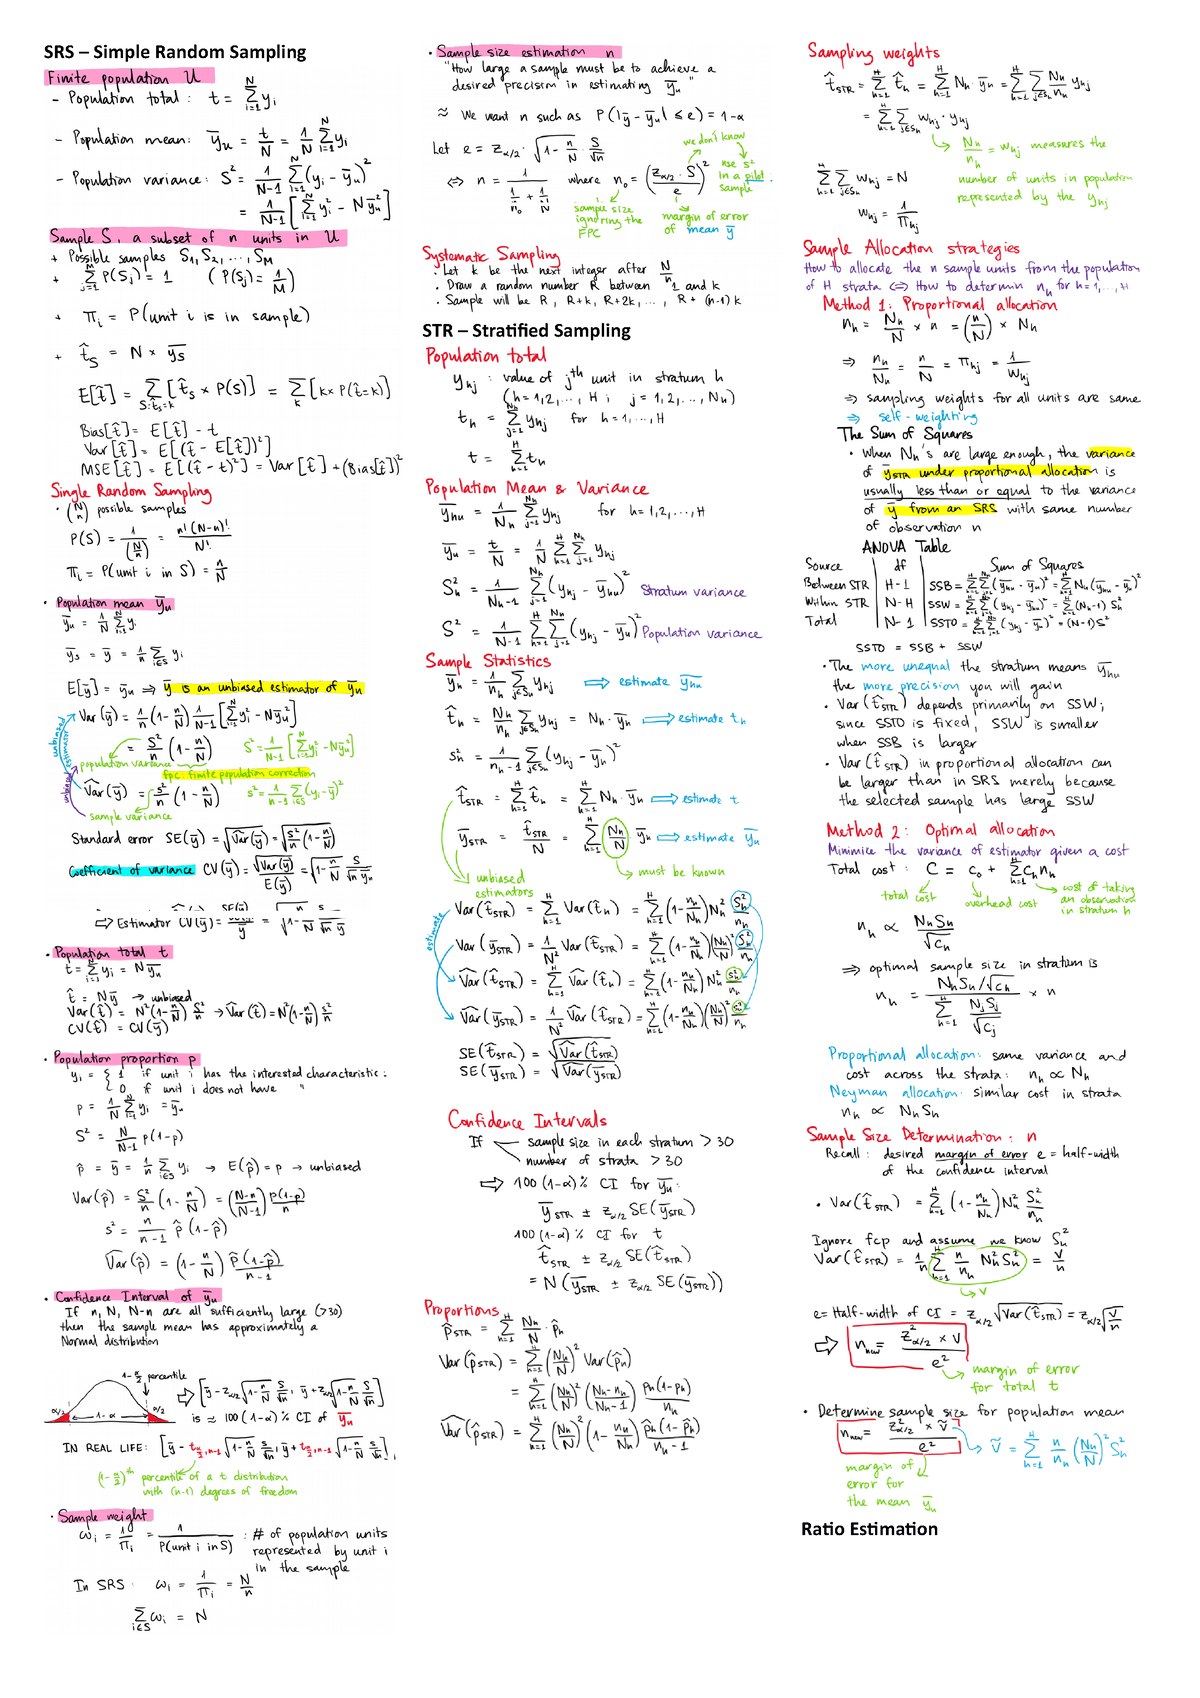 SRS – Simple Random Sampling
Finite population U
- Population total: t = Σ_{i=1}^{N} y_i
- Population mean: ȳ_u = t/N = 1/N Σ_{i=1}^{N} y_i
- Population variance: S² = 1/(N-1) Σ_{i=1}^{N} (y_i - ȳ_u)²
= 1/(N-1) [Σ_{i=1}^{N} y_i² - Nȳ_u²]
Sample S, a subset of n units in U
+ Possible samples S_1, S_2, ..., S_M
+ Σ_{j=1}^{M} P(S_j) = 1 (P(S_j) = 1/M)
+ π_i = P(unit i is in sample)
+ t̂_S = N × ȳ_S
E[t̂] = Σ_{S:t̂_S=k} [t̂_S × P(S)] = Σ_k [k × P(t̂=k)]
Bias[t̂] = E[t̂] - t
Var[t̂] = E[(t̂ - E[t̂])²]
MSE[t̂] = E[(t̂ - t)²] = Var[t̂] + (Bias[t̂])²
Single Random Sampling
· (N n) possible samples
P(S) = 1/(N n) = n!(N-n)!/N!
π_i = P(unit i in S) = n/N
• Population mean ȳ_u
ȳ_u = 1/N Σ_{i=1}^{N} y_i
ȳ_S = ȳ = 1/n Σ_{i∈S} y_i
E[ȳ] = ȳ_u ⇒ ȳ is an unbiased estimator of ȳ_u
Var(ȳ) = 1/n (1 - n/N) 1/(N-1) [Σ_{i=1}^{N} y_i² - Nȳ_u²]
= S²/n (1 - n/N) S² = 1/(N-1) [Σ_{i=1}^{N} y_i² - Nȳ_u²]
unbiased estimator
population variance
fpc: finite population correction
V̂ar(ȳ) = s²/n (1 - n/N) s² = 1/(n-1) Σ_{i∈S} (y_i - ȳ)²
sample variance
Standard error SE(ȳ) = √V̂ar(ȳ) = √(s²/n (1 - n/N))
Coefficient of variance CV(ȳ) = √Var(ȳ)/E(ȳ) = √(1 - n/N) S/(√n ȳ_u)
⇒ Estimator CV(ȳ) = SE(ȳ)/ȳ = √(1 - n/N) s/(√n ȳ)
• Population total t
t = Σ_{i=1}^{N} y_i = Nȳ_u
t̂ = Nȳ → unbiased
Var(t̂) = N²(1 - n/N) S²/n → V̂ar(t̂) = N²(1 - n/N) s²/n
CV(t̂) = CV(ȳ)
• Population proportion p
y_i = { 1 if unit i has the interested characteristic.
0 if unit i does not have "
p = 1/N Σ_{i=1}^{N} y_i = ȳ_u
S² = N/(N-1) p(1-p)
p̂ = ȳ = 1/n Σ_{i∈S} y_i → E(p̂) = p → unbiased
Var(p̂) = S²/n (1 - n/N) = ((N-n)/(N-1)) p(1-p)/n
s² = n/(n-1) p̂(1-p̂)
V̂ar(p̂) = (1 - n/N) p̂(1-p̂)/(n-1)
• Confidence Interval of ȳ_u
If n, N, N-n are all sufficiently large (>30)
then the sample mean has approximately a
Normal distribution
1-α/2 percentile
α/2 1-α α/2
⇒ [ȳ - z_{α/2} √(1 - n/N) S/√n ; ȳ + z_{α/2} √(1 - n/N) S/√n]
is ≈ 100(1-α)% CI of ȳ_u
IN REAL LIFE: [ȳ - t_{α/2,n-1} √(1 - n/N) s/√n ; ȳ + t_{α/2,n-1} √(1 - n/N) s/√n]
(1-α/2)^th percentile of a t distribution
with (n-1) degrees of freedom
• Sample weight
ω_i = 1/π_i = 1/P(unit i in S) : # of population units
represented by unit i
in the sample
In SRS: ω_i = 1/π_i = N/n
Σ_{i∈S} ω_i = N
• Sample size estimation n
"How large a sample must be to achieve a
desired precision in estimating ȳ_u"
≈ We want n such as P(|ȳ - ȳ_u| ≤ e) = 1-α
Let e = z_{α/2} · √(1 - n/N) · S/√n
we don't know
use s² in a pilot sample
⇔ n = 1/(1/n_0 + 1/N) where n_0 = (z_{α/2} · S / e)²
sample size ignoring the FPC
margin of error of mean ȳ
Systematic Sampling
· Let k be the next integer after N/n
· Draw a random number R between 1 and k
· Sample will be R, R+k, R+2k, ..., R+(n-1)k
STR – Stratified Sampling
Population total
y_hj : value of j^th unit in stratum h
(h = 1,2,..., H ; j = 1,2,..., N_h)
t_h = Σ_{j=1}^{N_h} y_hj for h = 1,..., H
t = Σ_{h=1}^{H} t_h
Population Mean & Variance
ȳ_hu = 1/N_h Σ_{j=1}^{N_h} y_hj for h = 1,2,..., H
ȳ_u = t/N = 1/N Σ_{h=1}^{H} Σ_{j=1}^{N_h} y_hj
S_h² = 1/(N_h-1) Σ_{j=1}^{N_h} (y_hj - ȳ_hu)² Stratum variance
S² = 1/(N-1) Σ_{h=1}^{H} Σ_{j=1}^{N_h} (y_hj - ȳ_u)² Population variance
Sample Statistics
ȳ_h = 1/n_h Σ_{j∈S_h} y_hj ⇒ estimate ȳ_hu
t̂_h = N_h/n_h Σ_{j∈S_h} y_hj = N_h · ȳ_h ⇒ estimate t_h
s_h² = 1/(n_h-1) Σ_{j∈S_h} (y_hj - ȳ_h)²
t̂_STR = Σ_{h=1}^{H} t̂_h = Σ_{h=1}^{H} N_h · ȳ_h ⇒ estimate t
ȳ_STR = t̂_STR/N = Σ_{h=1}^{H} N_h/N ȳ_h ⇒ estimate ȳ_u
unbiased estimators
must be known
estimate
Var(t̂_STR) = Σ_{h=1}^{H} Var(t̂_h) = Σ_{h=1}^{H} (1 - n_h/N_h) N_h² S_h²/n_h
Var(ȳ_STR) = 1/N² Var(t̂_STR) = Σ_{h=1}^{H} (1 - n_h/N_h)(N_h/N)² S_h²/n_h
V̂ar(t̂_STR) = Σ_{h=1}^{H} V̂ar(t̂_h) = Σ_{h=1}^{H} (1 - n_h/N_h) N_h² s_h²/n_h
V̂ar(ȳ_STR) = 1/N² V̂ar(t̂_STR) = Σ_{h=1}^{H} (1 - n_h/N_h)(N_h/N)² s_h²/n_h
SE(t̂_STR) = √V̂ar(t̂_STR)
SE(ȳ_STR) = √V̂ar(ȳ_STR)
Confidence Intervals
If sample size in each stratum > 30
number of strata > 30
⇒ 100(1-α)% CI for ȳ_u:
ȳ_STR ± z_{α/2} SE(ȳ_STR)
100(1-α)% CI for t
t̂_STR ± z_{α/2} SE(t̂_STR)
= N(ȳ_STR ± z_{α/2} SE(ȳ_STR))
Proportions
p̂_STR = Σ_{h=1}^{H} N_h/N · p̂_h
Var(p̂_STR) = Σ_{h=1}^{H} (N_h/N)² Var(p̂_h)
= Σ_{h=1}^{H} (N_h/N)² ((N_h-n_h)/(N_h-1)) p_h(1-p_h)/n_h
V̂ar(p̂_STR) = Σ_{h=1}^{H} (N_h/N)² (1 - n_h/N_h) p̂_h(1-p̂_h)/(n_h-1)
Sampling weights
t̂_STR = Σ_{h=1}^{H} t̂_h = Σ_{h=1}^{H} N_h · ȳ_h = Σ_{h=1}^{H} Σ_{j∈S_h} N_h/n_h y_hj
= Σ_{h=1}^{H} Σ_{j∈S_h} w_hj · y_hj
N_h/n_h = w_hj measures the
number of units in population
represented by the y_hj
Σ_{h=1}^{H} Σ_{j∈S_h} w_hj = N
w_hj = 1/π_hj
Sample Allocation strategies
How to allocate the n sample units from the population
of H strata ⇔ How to determin n_h for h=1,..., H
Method 1: Proportional allocation
n_h = N_h/N × n = (n/N) × N_h
⇒ n_h/N_h = n/N = π_hj = 1/w_hj
⇒ sampling weights for all units are same
⇒ self-weighting
The Sum of Squares
· When N_h's are large enough, the variance
of ȳ_STR under proportional allocation is
usually less than or equal to the variance
of ȳ from an SRS with same number
of observation n
ANOVA Table
Source df Sum of Squares
Between STR H-1 SSB = Σ_{h=1}^{H} Σ_{j=1}^{N_h} (ȳ_hu - ȳ_u)² = Σ_{h=1}^{H} N_h(ȳ_hu - ȳ_u)²
Within STR N-H SSW = Σ_{h=1}^{H} Σ_{j=1}^{N_h} (y_hj - ȳ_hu)² = Σ_{h=1}^{H} (N_h-1) S_h²
Total N-1 SSTO = Σ_{h=1}^{H} Σ_{j=1}^{N_h} (y_hj - ȳ_u)² = (N-1)S²
SSTO = SSB + SSW
· The more unequal the stratum means ȳ_hu
the more precision you will gain
· Var(t̂_STR) depends primarily on SSW;
since SSTO is fixed, SSW is smaller
when SSB is larger
· Var(t̂_STR) in proportional allocation can
be larger than in SRS merely because
the selected sample has large SSW
Method 2: Optimal allocation
Minimice the variance of estimator given a cost
Total cost: C = c_0 + Σ_{h=1}^{H} c_h n_h
total cost
overhead cost
cost of taking an observation in stratum h
n_h ∝ N_h S_h/√c_h
⇒ optimal sample size in stratum is
n_h = (N_h S_h/√c_h)/(Σ_{h=1}^{H} N_j S_j/√c_j) × n
Proportional allocation: same variance and
cost across the strata: n_h ∝ N_h
Neyman allocation: similar cost in strata
n_h ∝ N_h S_h
Sample Size Determination: n
Recall: desired margin of error e = half-width
of the confidence interval
• Var(t̂_STR) = Σ_{h=1}^{H} (1 - n_h/N_h) N_h² S_h²/n_h
Ignore fcp and assume we know S_h²
Var(t̂_STR) = 1/n Σ_{h=1}^{H} n/n_h N_h² S_h² = V/n
→ V
e = Half-width of CI = z_{α/2} √Var(t̂_STR) = z_{α/2} √(V/n)
⇒ n_new = z²_{α/2} × V / e²
margin of error
for total t
• Determine sample size for population mean
n_new = z²_{α/2} × Ṽ / e² → Ṽ = Σ_{h=1}^{H} n/n_h (N_h/N)² S_h²
margin of
error for
the mean ȳ_u
Ratio Estimation